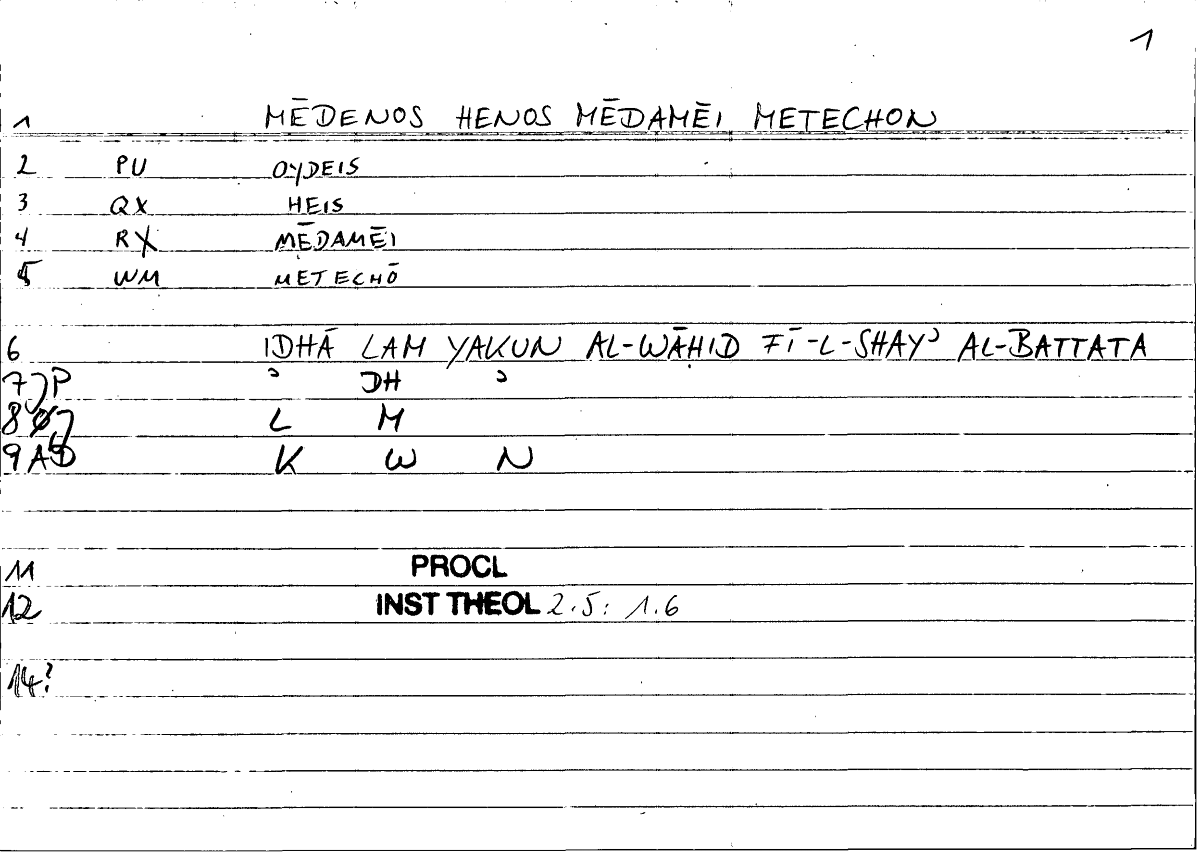 1
1 MĒDENOS HENOS MĒDAMĒI METECHON
2 PU OYDEIS
3 QX HEIS
4 RX MĒDAMĒI
5 WM METECHŌ
6 IDHĀ LAM YAKUN AL-WĀḤID FĪ-L-SHAYʾ AL-BATTATA
7 P ʾ DH ʾ
8 L M
9 K W N
11 PROCL
12 INST THEOL 2.5: 1.6
14?